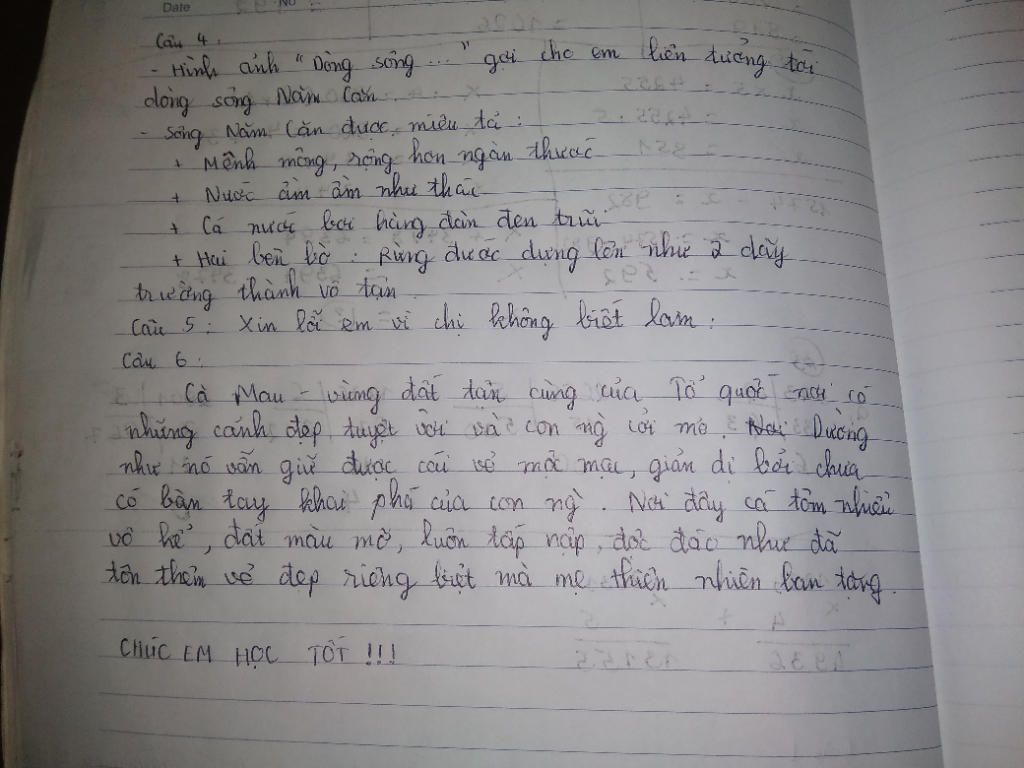 Date No
Câu 4:
- Hình ảnh "Dòng sông ..." gợi cho em liên tưởng tới
dòng sông Năm Căn.
- Sông Năm Căn được miêu tả:
+ Mênh mông, rộng hơn ngàn thước
+ Nước ầm ầm như thác
+ Cá nước bơi hàng đàn đen trũi
+ Hai bên bờ: Rừng đước dựng lên như 2 dãy
trường thành vô tận
Câu 5: Xin lỗi em vì chị không biết làm:
Câu 6:
Cà Mau - vùng đất tận cùng của Tổ quốc nơi có
những cảnh đẹp tuyệt vời và con ng cởi mở. Dường
như nó vẫn giữ được cái vẻ mộc mạc, giản dị bởi chưa
có bàn tay khai phá của con ng. Nơi đây cá tôm nhiều
vô kể, đất màu mỡ, luôn tấp nập, độc đáo như đã
tôn thêm vẻ đẹp riêng biệt mà mẹ thiên nhiên ban tặng.
CHÚC EM HỌC TỐT !!!